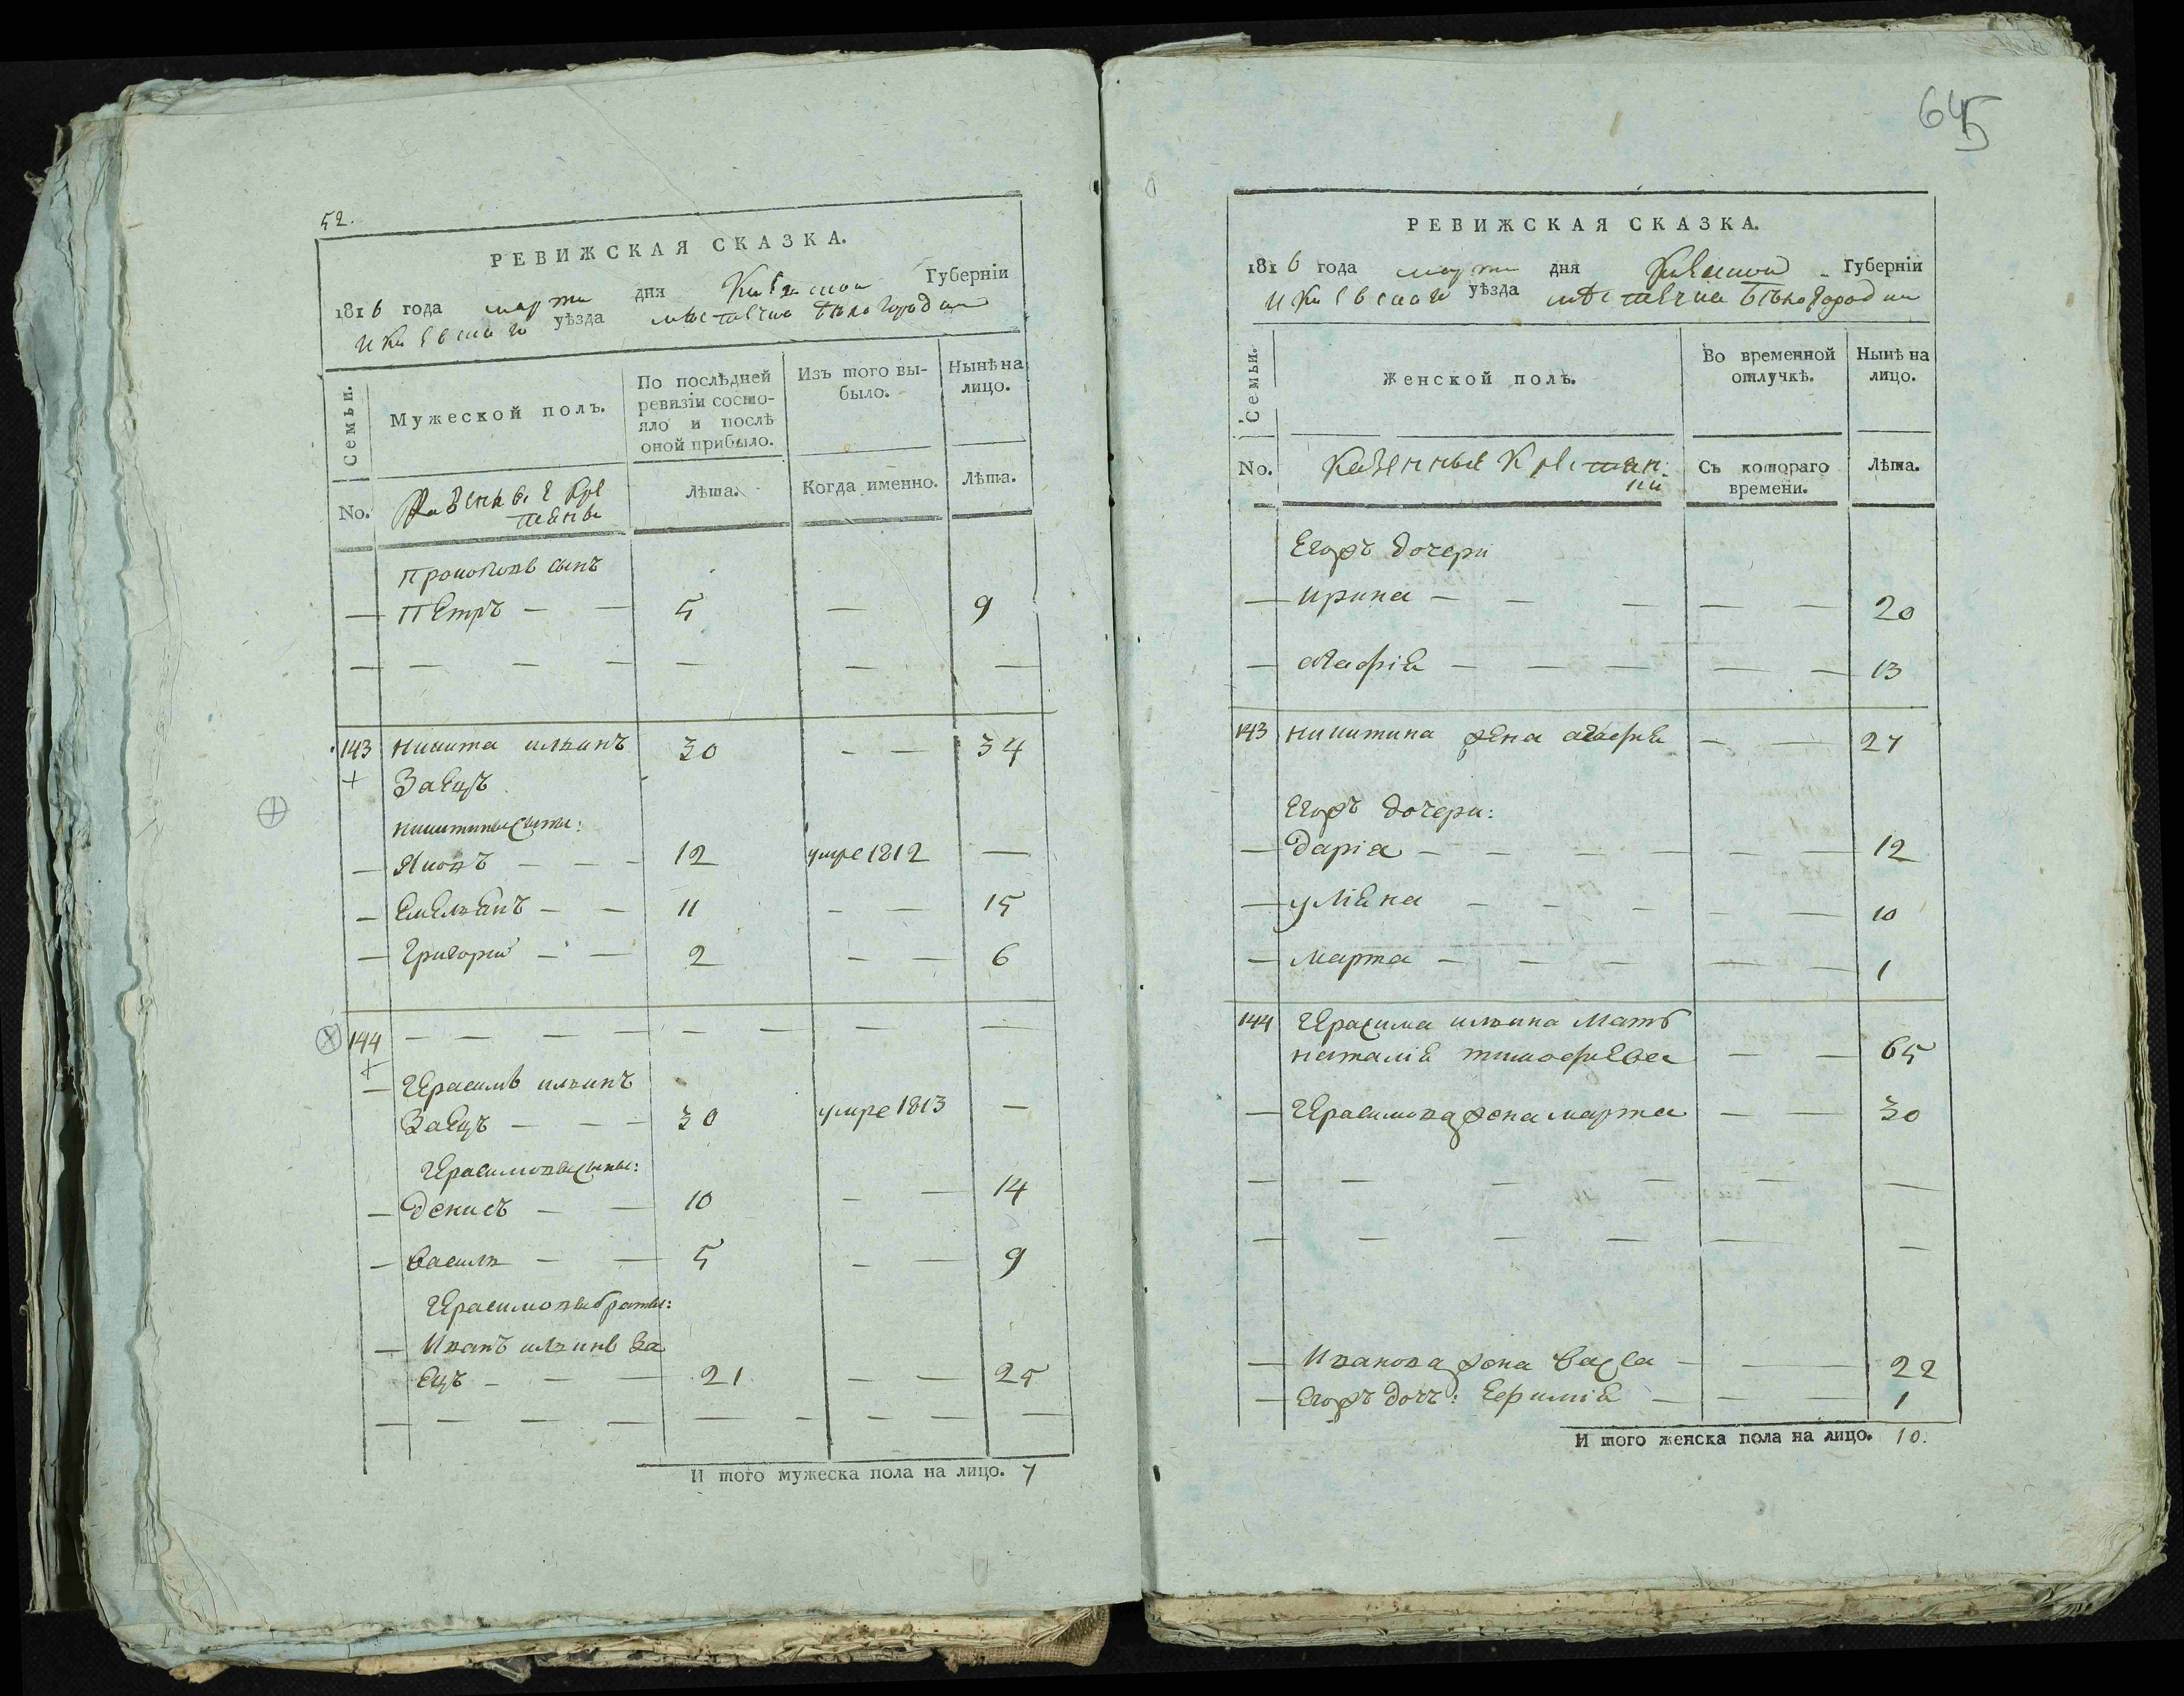 52.
РЕВИЖСКАЯ СКАЗКА.
1816 года марта дня Киевской Губерніи
и Киевского уѣзда мѣстечка Бѣлогородки
Семьи.
Мужеской полъ.
По послѣдней
ревизіи состо-
яло и послѣ
оной прибыло.
Изъ того вы-
было.
Нынѣ на
лицо.
No.
Казенные Кре
стяне
Лѣта.
Когда именно.
Лѣта.
Прокоповъ сынъ
— Петръ — — 5 — 9
— — — — — — —
143 Никита ильинъ 30 — — 34
+ Заецъ
никитины сыны:
— Яковъ — — — 12 умре 1812 —
— Емельянъ — — 11 — — 15
— Григорий — — 2 — — 6
144 — — — — — — — —
+
— Герасимъ ильинъ
Заецъ — — — 30 умре 1813 —
Герасимовы сыны:
— Денисъ — — 10 — — 14
— Василь — — 5 — — 9
Герасимовы браты:
— Иванъ ильинъ За
ецъ — — — 21 — — 25
— — — — — — — — —
И того мужеска пола на лицо. 7
645
РЕВИЖСКАЯ СКАЗКА.
1816 года марта дня Киевской Губерніи
и Киевского уѣзда мѣстечка Бѣлогородки
Семьи.
Женской полъ.
Во временной
отлучкѣ.
Нынѣ на
лицо.
No.
Казенные Крестян
ки
Съ котораго
времени.
Лѣта.
Егожъ дочери
— Ирина — — — — — 20
— агафія — — — — — 13
143 никитина жена агафия — — 27
Егожъ дочери:
— Дарія — — — — — — 12
— уліяна — — — — — 10
— Марта — — — — — 1
144 Герасима ильина мать
наталія тимофеева — — 65
— Герасимова жена марта — — 30
— — — — — —
— — — — — —
— Иванова жена Васса — — — 22
— Егожъ дочъ: Ефимія — — — 1
И того женска пола на лицо. 10.